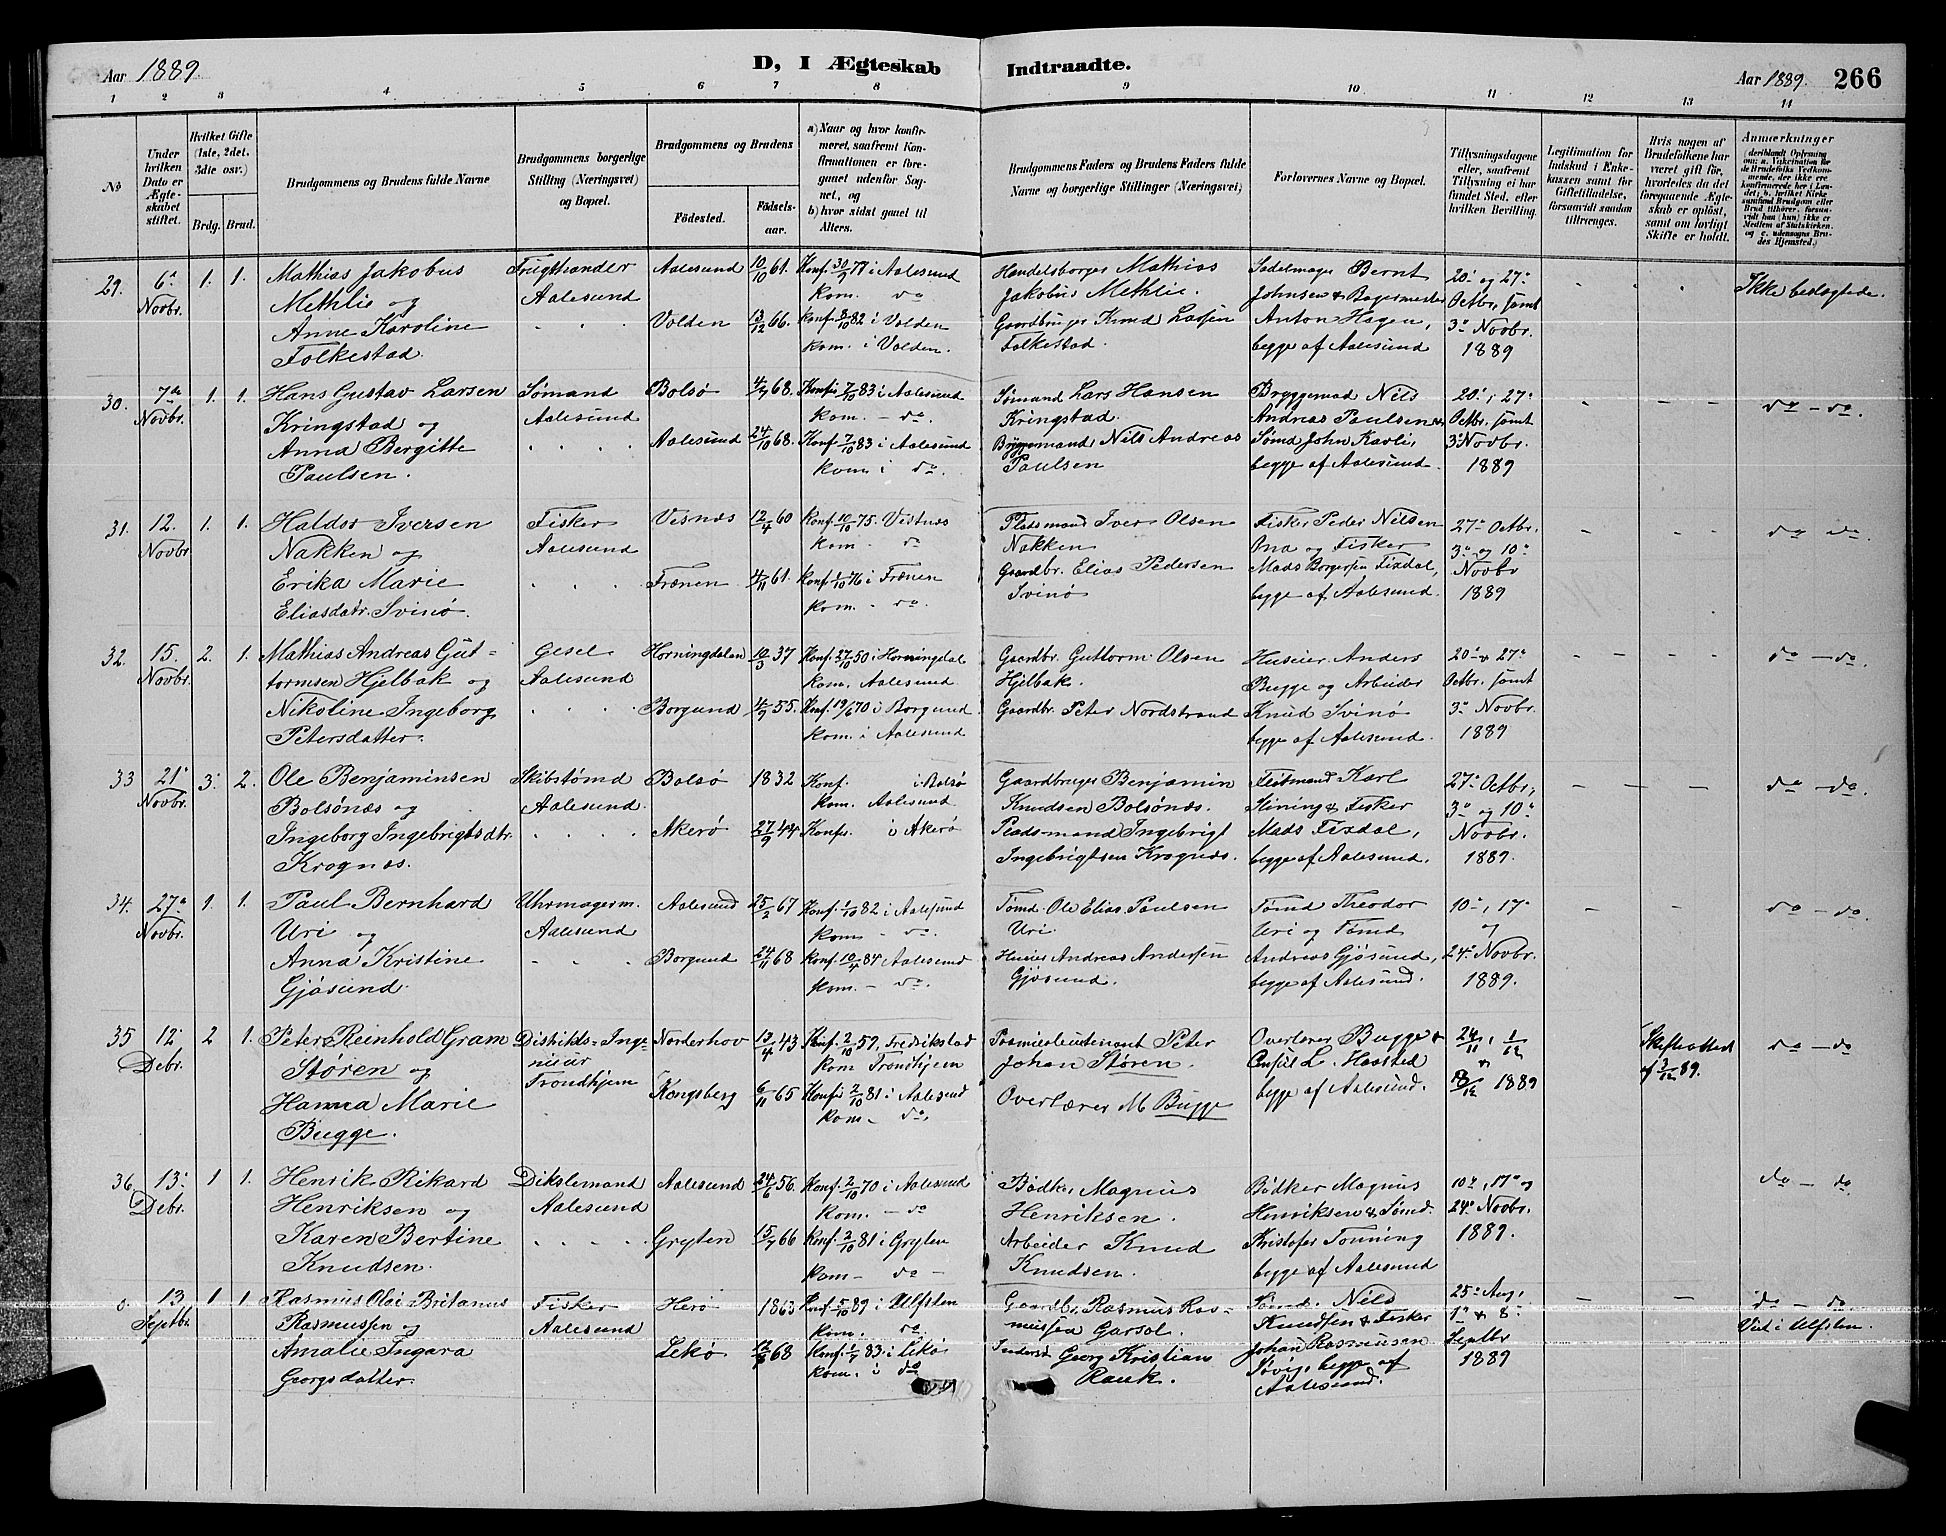 Aar 1889.
D, I Ægteskab Indtraadte.
Aar 1889. 266
1 2 3 4 5 6 7 8 9 10 11 12 13 14
No
Under hvilken Dato er Ægteskabet stiftet.
Hvilket Gifte (1ste, 2det, 3die osv.)
Brdg. Brud.
Brudgommens og Brudens fulde Navne
Brudgommens borgerlige Stilling (Næringsvei) og Bopæl.
Brudgommens og Brudens
Fødested. Fødselsaar.
a) Naar og hvor konfirmeret, saafremt Konfirmationen er foregaaet udenfor Sognet, og
b) hvor sidst gaaet til Alters.
Brudgommens Faders og Brudens Faders fulde Navne og borgerlige Stillinger (Næringsvei)
Forlovernes Navne og Bopæl.
Tillysningsdagene eller, saafremt Tillysning ei har fundet Sted, efter hvilken Bevilling.
Legitimation for Indskud i Enkekassen samt for Giftetilladelse, forsaavidt saadan tiltrænges.
Hvis nogen af Brudefolkene har været gift før, hvorledes da det foregaaende Ægteskab er opløst, samt om lovligt Skifte er holdt.
Anmærkninger
29. 6' Novbr. 1. 1.
Mathias Jakobus
Methlie og
Anne Karoline
Folkestad.
Frugthandler
Aalesund
Aalesund 10/10 61.
Volden 13/12 66.
Konf. 30/9 77 i Aalesund
kom. do
Konf. 8/10 82 i Volden
kom. i Volden.
Handelsborger Mathias
Jakobus Methlie.
Gaardbruger Knud Larsen
Folkestad.
Sadelmager Bernt
Johnsen & Bagermester
Anton Hagen,
begge af Aalesund
20' og 27'
Octbr. samt
3' Novbr.
1889
Ikke beslægtede.
30. 7de Novbr. 1. 1.
Hans Gustav Larsen
Kringstad og
Anna Bergitte
Paulsen.
Sømand
Aalesund
Bolsø 4/7 68.
Aalesund 24/10 68.
Konf. 7/10 83 i Aalesund
kom. - do.
Konf. 7/10 83 i Aalesund
kom. i do.
Sømand Lars Hansen
Kringstad.
Byggemand Nils Andreas
Paulsen
Bryggemad Nils
Andreas Paulsen &
Sømd John Kavli,
begge af Aalesund.
20', 27'
Octbr. samt
3' Novbr.
1889
do - do.
31. 12. Novbr 1. 1.
Haldor Iversen
Nakken og
Erika Marie
Eliasdatr. Svinø.
Fisker
Aalesund
Vesnæs 12/4 60
Frænen 4/11 61.
Konf. 10/10 75. Vestnæs
kom. - do
Konf. 1/10 76 i Frænen
kom. - do.
Pladsmand Iver Olsen
Nakken
Gaardbr. Elias Pedersen
Svinø
Fisker Peder Nilsen
Ona og Fisker
Mads Borgersen Fixdal,
begge af Aalesund.
27' Octbr.
3' og 10'
Novbr
1889
do do.
32. 15. Novbr. 2. 1.
Mathias Andreas Gut-
tormsen Hjelbak og
Nikoline Ingeborg
Petersdatter.
Gesel
Aalesund
Horningdalen 10/3 37
Borgund 4/9 55.
Konf. 27/10 50 i Horningdal
kom. Aalesund
Konf. 19/6 70 i Borgund
kom. i Aalesund
Gaardbr. Guttorm Olsen
Hjelbak.
Gaardbr. Peter Nordstrand
Huseier Anders
Bugge og Arbeider
Knud Svinø
begge af Aalesund.
20' & 27'
Octbr. samt
3' Novbr.
1889
do - do.
33 21' Novbr. 3. 2.
Ole Benjaminsen
Bolsønæs og
Ingeborg Ingebrigtsdtr.
Krognæs.
Skibstømd
Aalesund.
Bolsø 1832
Akerø 27/9 44
Konf. i Bolsø
kom. Aalesund
Konfr. i Akerø
Gaardbruger Benjamin
Knudsen Bolsønæs.
Pladsmand Ingebrigt
Ingebrigtsen Krognæs.
Karl
& Fisker
Mads Fixdal,
begge af Aalesund.
27' Octbr,
3' og 10'
Novbr.
1889.
do - do.
34. 27' Novbr. 1. 1.
Paul Bernhard
Uri og
Anna Kristine
Gjøsund.
Uhrmagerm.
Aalesund
Aalesund 25/2 67
Borgund 24/11 68
Konf. 1/10 82 i Aalesund
kom. - do.
Konf. 10/4 84 i Aalesund
kom. - do.
Tømd. Ole Elias Paulsen
Uri.
Huseier Andreas Andersen
Gjøsund.
Tømd Theodor
Uri og Tømd
Andreas Gjøsund,
begge af Aalesund.
10', 17'
og
24' Novbr.
1889.
do - do.
35 12' Debr. 2 1.
Peter Reinhold Gram
Støren og
Hanna Marie
Bugge.
Distrikts-Inge-
niеur
Trondhjem
Norderhov 13/4 43
Kongsberg 6/11 65
Konf. 2/10 59, Fredrikstad
kom Tronshjem
Konf. 2/10 81 i Aalesund
kom. - do.
Premierlieutenant Peter
Johan Støren.
Overlærer M Bugge
Overlærer Bugge &
Consul L. Haasted
begge af Aalesund.
24/11, 1/12
&
8/12 1889
Skifteattest
af 3/12 89.
do - do
36 13' Debr. 1 1.
Henrik Rikard
Henriksen og
Karen Bertine
Knudsen.
Dikslemand
Aalesund
Aalesund 24/6 56.
Gryten 15/7 66
Konf. 2/10 70 i Aalesund
kom. - do
Konf. 2/10 81 i Gryten
kom - do -
Bødker Magnus
Henriksen.
Arbeider Knud
Knudsen.
Bødker Magnus
Henriksen & Sømd.
Kristofer Tonning
begge af Aalesund
10', 17' og
24' Novbr.
1889.
do - do.
0. 13 Septbr. 1 1
Rasmus Olai Britanus
Rasmussen og
Amalie Ingara
Georgsdatter.
Fisker
Aalesund
Herø 1863
Lekø 68
Konf. 5/10 89 i Ulfsten
kom. do.
Konf. 1/7 83 i Lekø
kom. i do
Gaardbr. Rasmus Ras-
mussen Garsol.
Georg Kristian
Rauk.
Sømd. Nils
Knudsen & Fisker
Johan Rasmussen
Søvig, begge af
Aalesund.
25' Aug,
1' & 8'
Septbr
1889
do - do
Viet i Ulfsten.